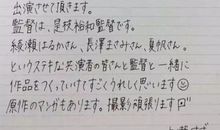 出演させて頂きます。
監督は、是枝裕和監督です。
綾瀬はるかさん、長澤まさみさん、夏帆さん。
というステキな共演者の皆さんと監督と一緒に
作品をつくっていけてすごくうれしく思います☺
原作のマンガもあります。撮影頑張ります